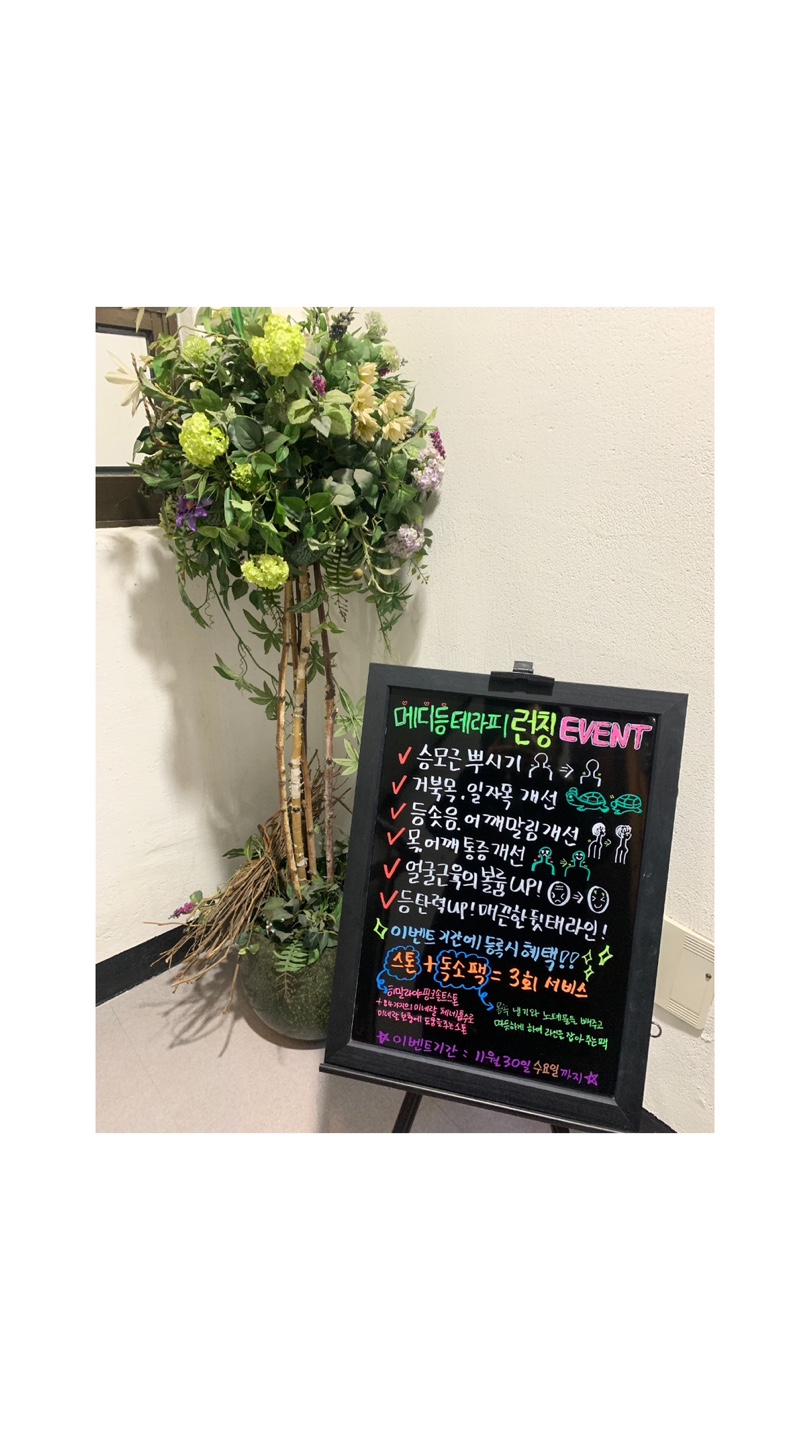 메디등테라피 런칭 EVENT
✓ 승모근 뿌시기 →
✓ 거북목. 일자목 개선 →
✓ 등솟음. 어깨말림 개선 →
✓ 목, 어깨 통증 개선 →
✓ 얼굴근육의 볼륨 UP! →
✓ 등 탄력 UP! 매끈한 뒷태라인!
이벤트 기간에 등록시 혜택!!
스톤 + 독소팩 = 3회 서비스
히말라야 핑크솔트스톤
+ 84가지의 미네랄 체내흡수로
미네랄 보충에 도움을주는스톤
몸속 냉기와 노폐물을 빼주고
따뜻하게 하여 라인을 잡아 주는팩
☆이벤트기간 : 11월 30일 수요일 까지☆